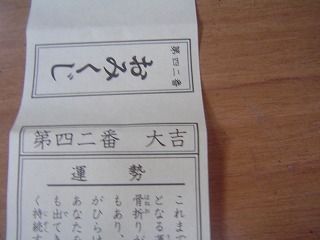 第四二番
おみくじ
第四二番 大吉
運勢
これまで
となる運
骨折りが
もあり、
がひらけ
あなたな
も出てき
く持続す